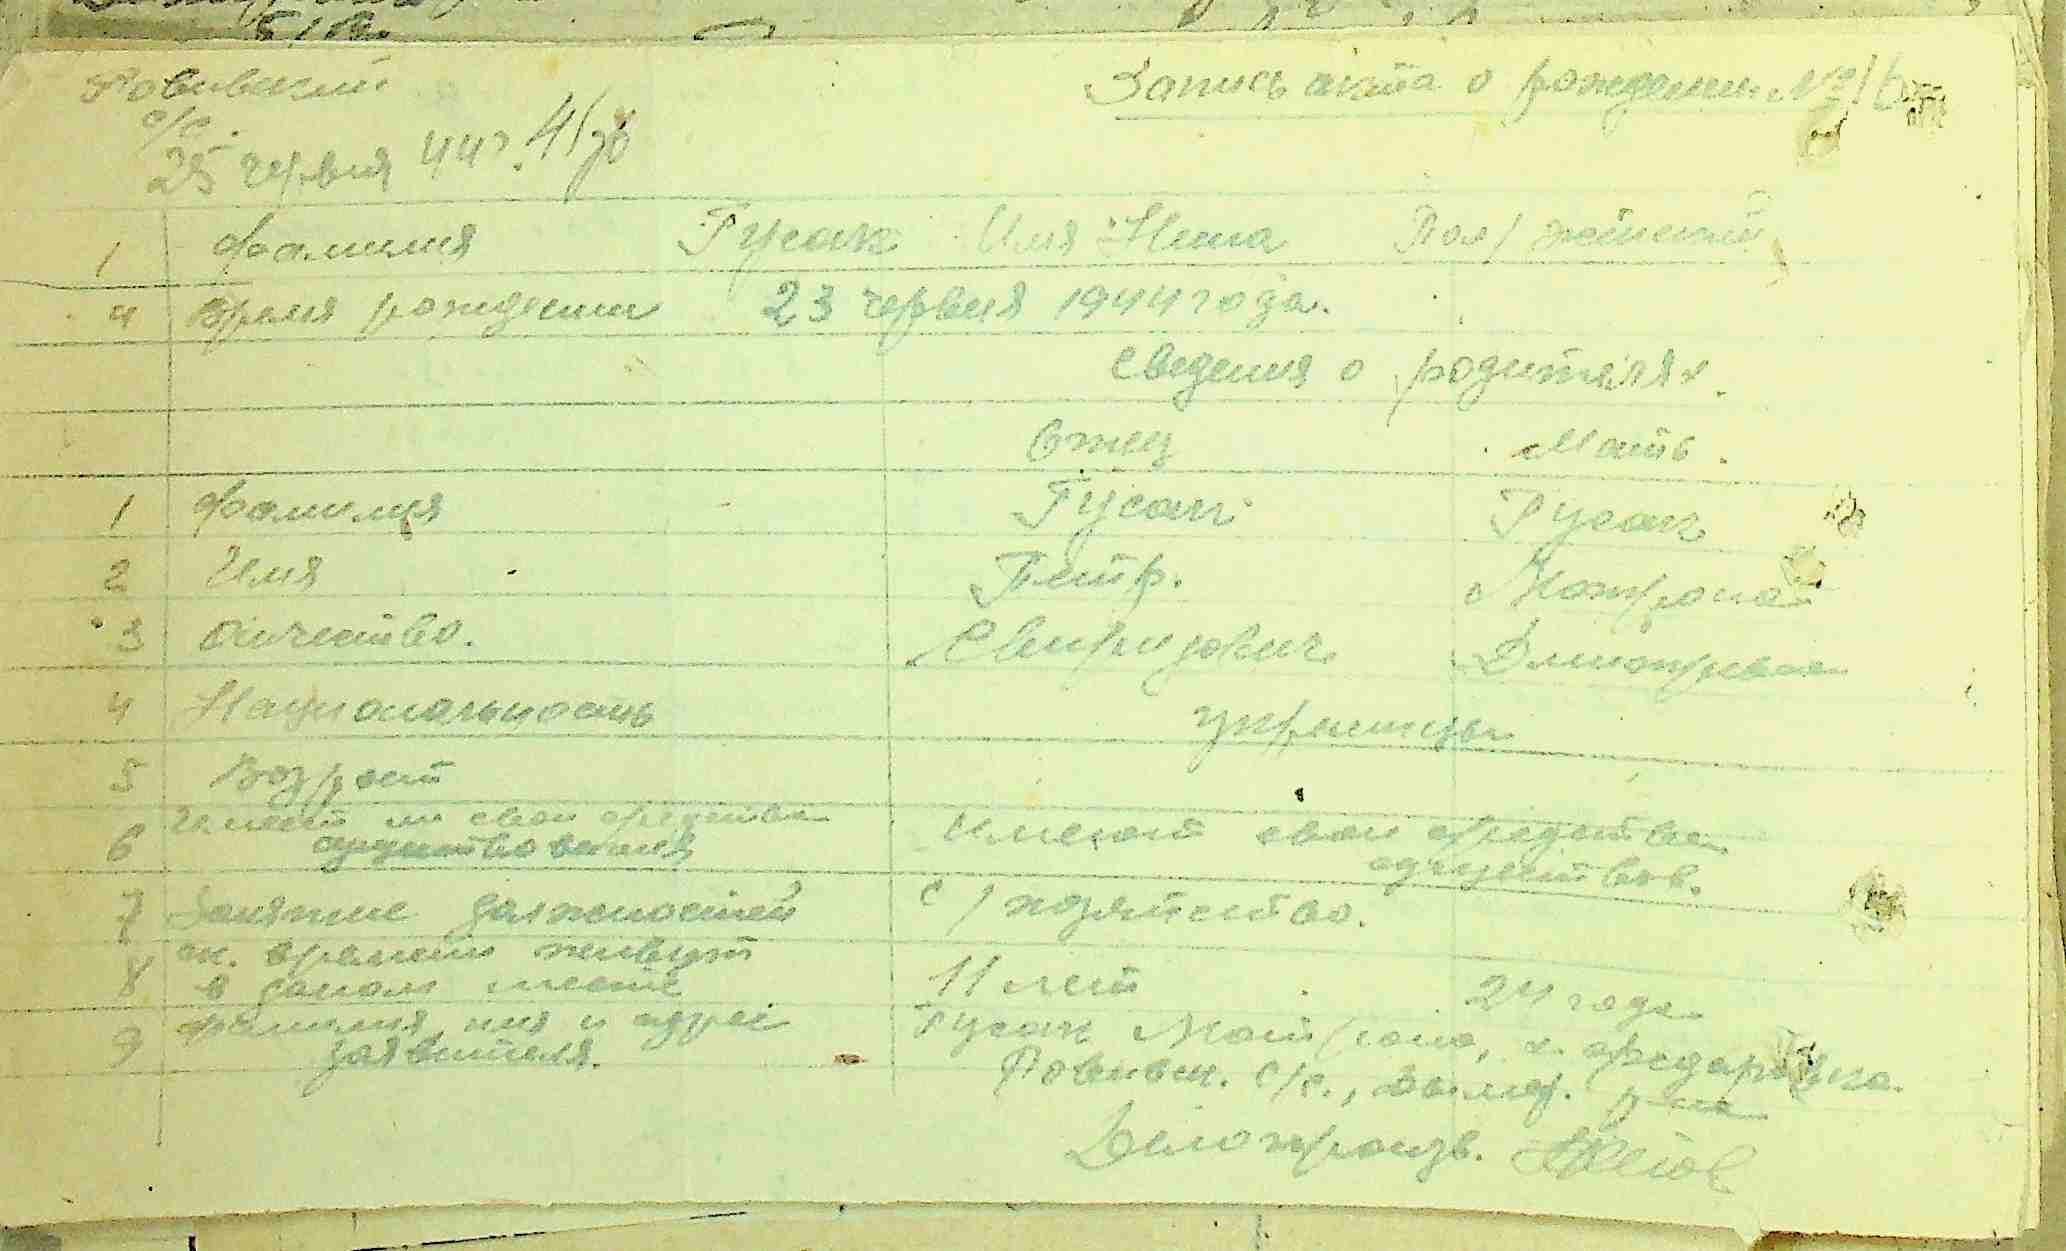 Запись акта о рождении №16
с/с.
25 червня 44 г.
1 Фамилия Гусак Имя Нина Пол/ женский
4 Время рождения 23 червня 1944 года.
Сведения о родителях.
Отец Мать.
1 Фамилия Гусак Гусак
2 Имя Петр. Матрона
3 Отчество. Свиридович Дмитриевна
4 Национальность украинцы
5 Возраст
6 Имеет ли свои средства
существования
Имеют свои средства
существов.
7 Занятие должностей с/хозяйство.
8 ск. времени живут
в даном месте
11 лет 24 года
9 Фамилия, имя и адрес
заявителя.
Гусак Матрона, х.
с/с., р-на
Делопроизв.